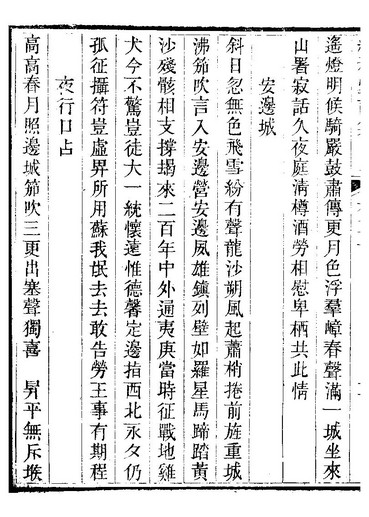 遙燈明候騎嚴鼓肅傳更月色浮羣嶂春聲滿一城坐來
山署寂話久夜庭淸樽酒勞相慰卑棲共此情
安邊城
斜日忽無色飛雪紛有聲龍沙朔風起蕭梢捲前旌重城
沸笳吹言入安邊營安邊夙雄鎭列壁如羅星馬蹄踏黃
沙殘骸相支撐朅來二百年中外遍夷庚當時征戰地雞
犬今不驚豈徒大一統懷遠惟德馨定邊指西北永夕仍
孤征攝符豈虛畀所用蘇我氓去去敢告勞王事有期程
夜行口占
高高春月照邊城笳吹三更出塞聲獨喜 昇平無斥堠